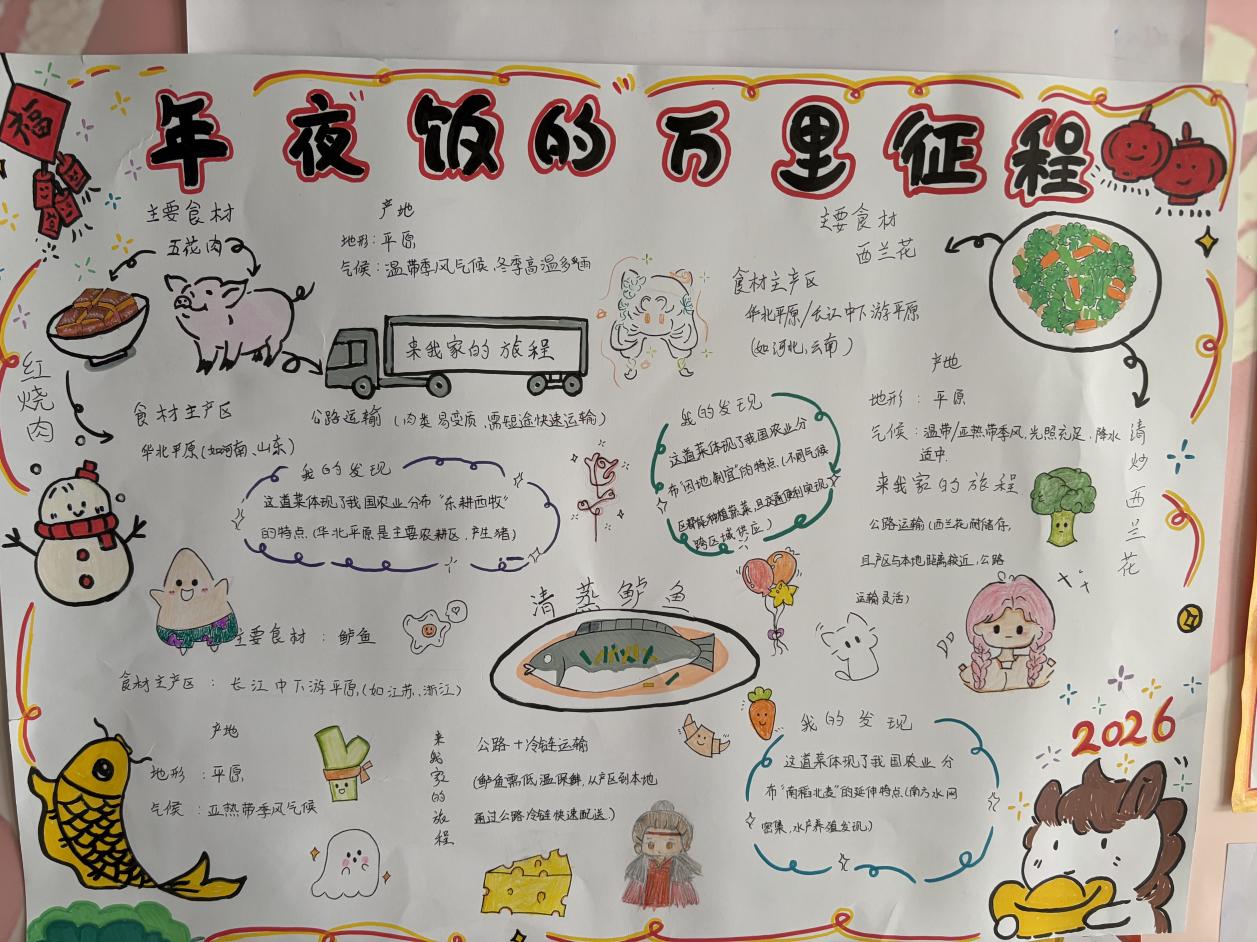 福
年夜饭的万里征程
主要食材
五花肉
红烧肉
产地
地形：平原
气候：温带季风气候,冬季高温多雨
来我家的旅程
公路运输（肉类易变质,需短途快速运输）
食材主产区
华北平原（如河南、山东）
我的发现
这道菜体现了我国农业分布“东耕西牧”
的特点.（华北平原是主要农耕区,产生猪）
主要食材
西兰花
清炒西兰花
食材主产区
华北平原/长江中下游平原
（如河北,云南）
产地
地形：平原
气候：温带/亚热带季风,光照充足,降水
适中.
来我家的旅程
公路运输（西兰花耐储存,
且产区与本地距离较近,公路
运输灵活）
我的发现
这道菜体现了我国农业分
布“因地制宜”的特点.（不同气候
区都能种植蔬菜,且交通便利实现
跨区域供应）
清蒸鲈鱼
主要食材：鲈鱼
食材主产区：长江中下游平原.（如江苏、浙江）
产地
地形：平原
气候：亚热带季风气候
来我家的旅程
公路+冷链运输
（鲈鱼需低温保鲜,从产区到本地
通过公路冷链快速配送.）
我的发现
这道菜体现了我国农业分
布“南稻北麦”的延伸特点.（南方水网
密集,水产养殖发现.）
2026